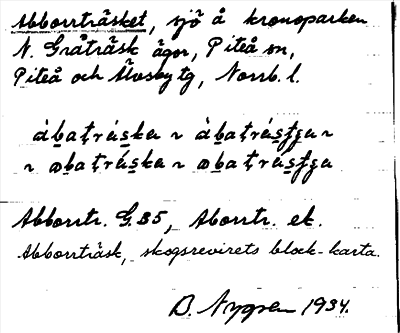 Abborrträsket, sjö å kronoparken
N. Gråträsk ägor, Piteå sn,
Piteå och Älvsby tg, Norrb. l.
àbatráska ~ àbatrásʒa ~
~ abatráska ~ abatrásʒa
Abborrtr. G. 35, Aborrtr. ek.
Abborrträsk, skogsrevirets block-karta.
B. Nygren 1934.